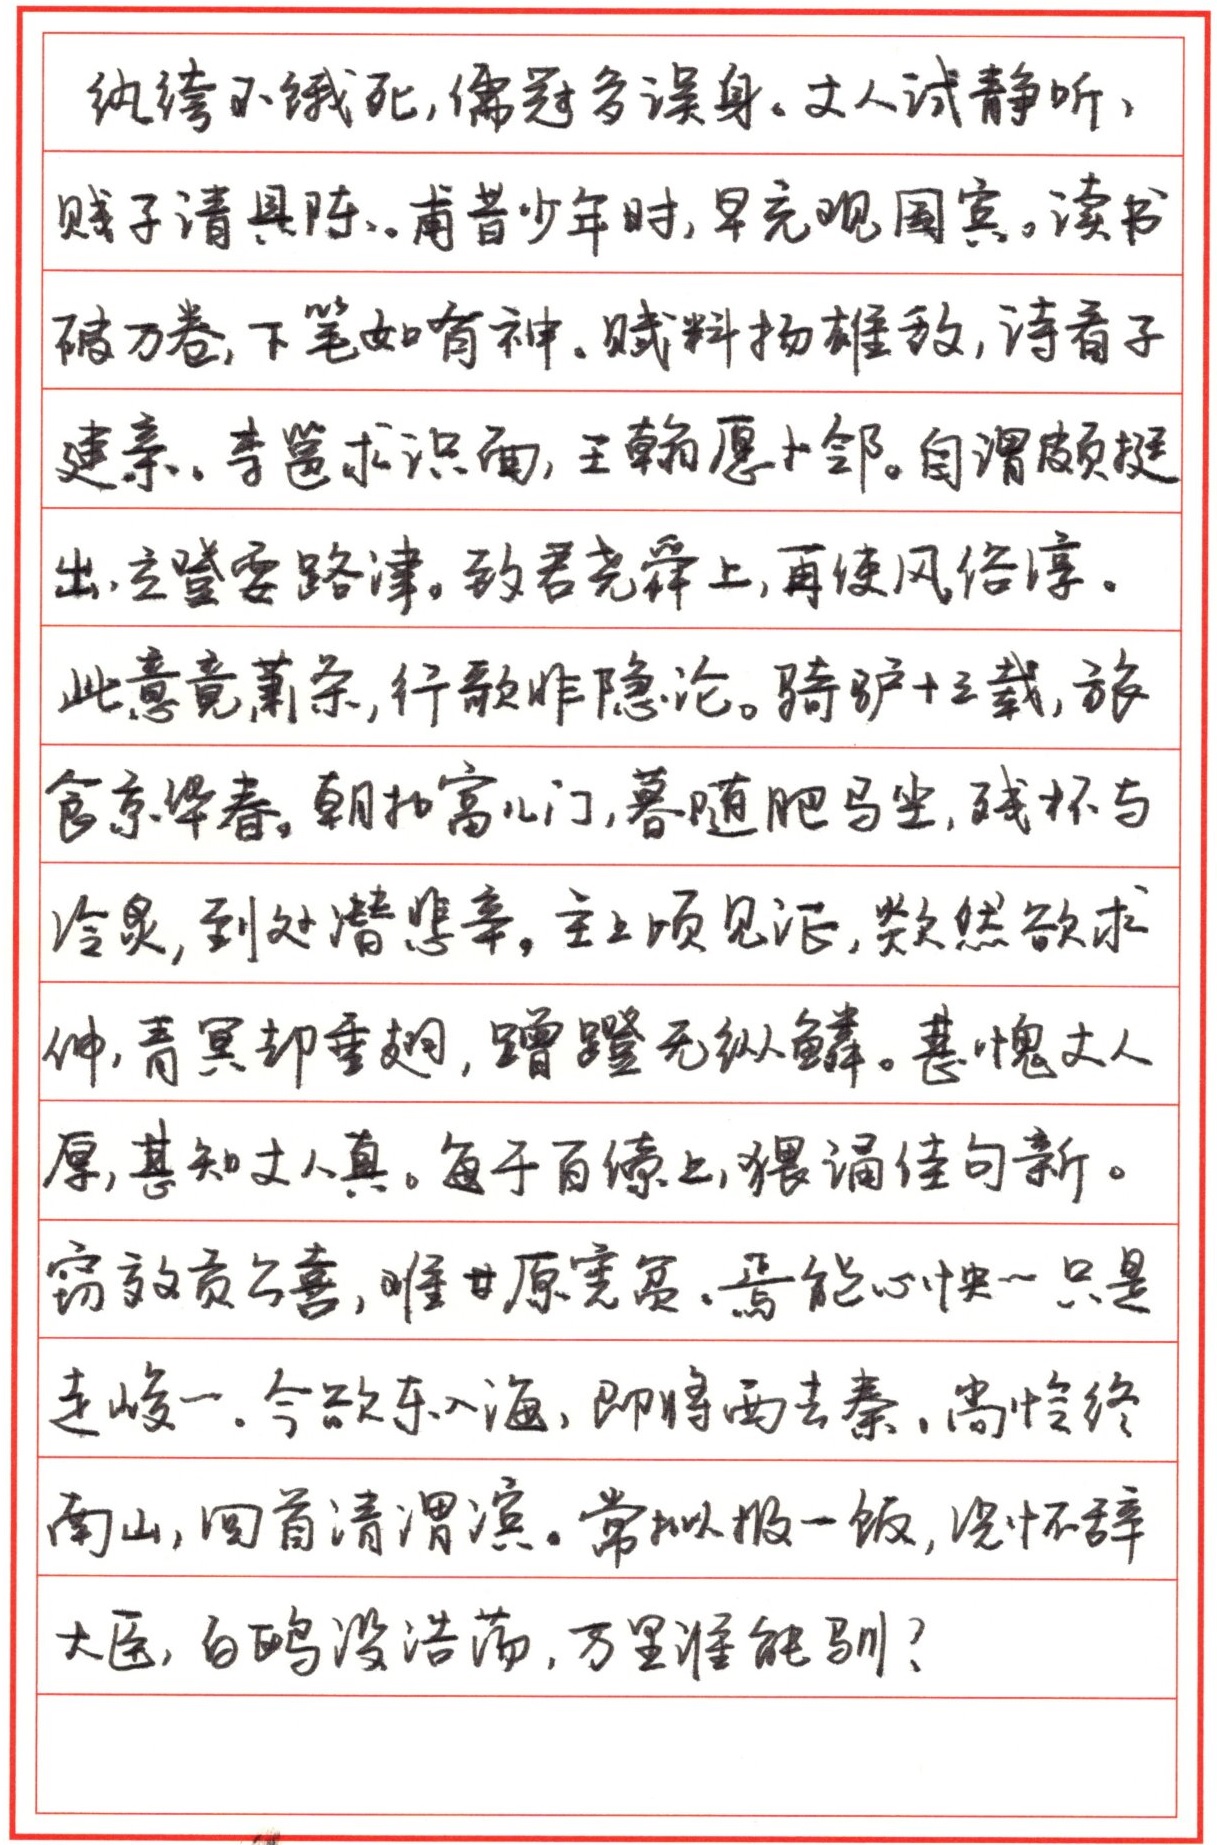 纨绔不饿死,儒冠多误身。丈人试静听,
贱子请具陈。甫昔少年时,早充观国宾。读书
破万卷,下笔如有神。赋料扬雄敌,诗看子
建亲。李邕求识面,王翰愿卜邻。自谓颇挺
出,立登要路津。致君尧舜上,再使风俗淳。
此意竟萧条,行歌非隐沦。骑驴十三载,旅
食京华春。朝扣富儿门,暮随肥马尘,残杯与
冷炙,到处潜悲辛。主上顷见征,欻然欲求
伸,青冥却垂翅,蹭蹬无纵鳞。甚愧丈人
厚,甚知丈人真。每于百僚上,猥诵佳句新。
窃效贡公喜,难甘原宪贫。焉能心怏一只是
走峻一。今欲东入海,即将西去秦。尚怜终
南山,回首清渭滨。常拟报一饭,况怀辞
大臣,白鸥没浩荡,万里谁能驯?